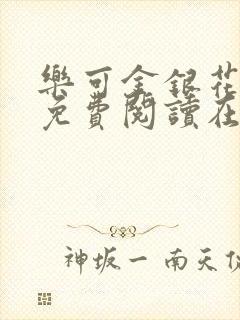 樂可金銀花
免費閱讀在
神坂一 南天